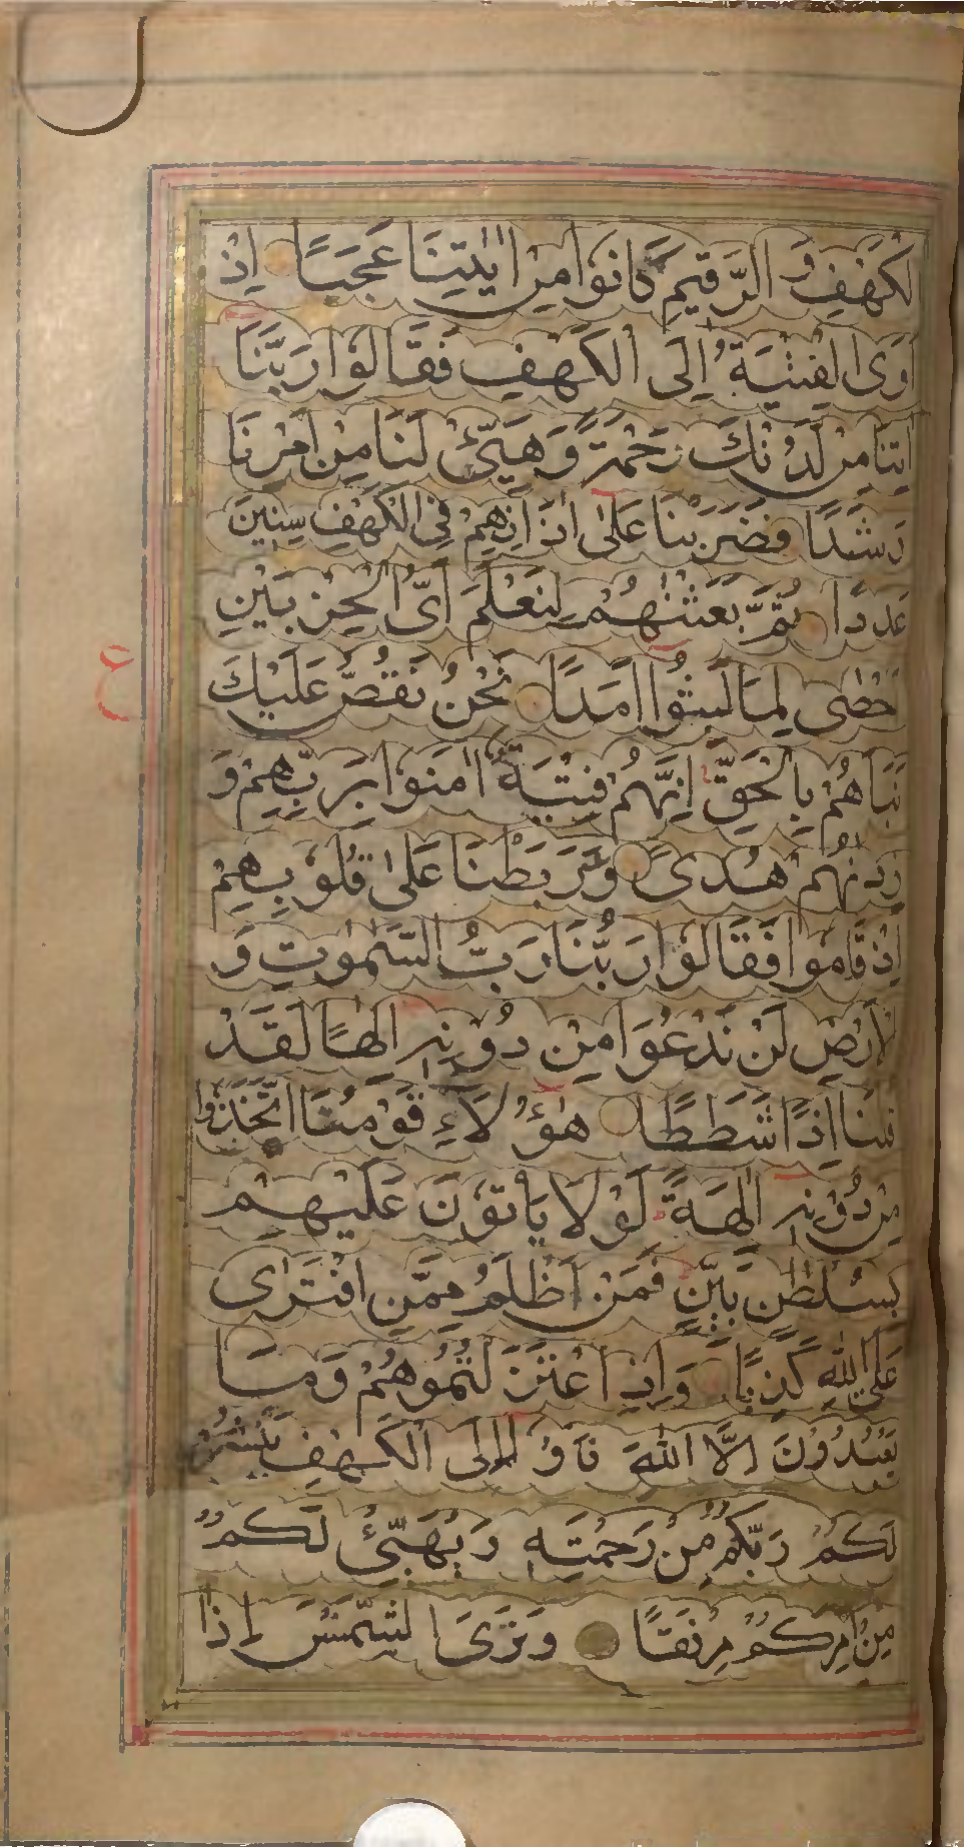 لكَهْفِ وَ الرَّقِيْمِ كَانُوْا مِنْ اٰيٰتِنَا عَجَبًا اِذْ
اَوَى الْفِتْيَةُ اِلَى الْكَهْفِ فَقَالُوْا رَبَّنَا
اٰتِنَا مِنْ لَّدُنْكَ رَحْمَةً وَّ هَيِّئْ لَنَا مِنْ اَمْرِنَا
رَشَدًا فَضَرَبْنَا عَلٰى اٰذَانِهِمْ فِى الْكَهْفِ سِنِيْنَ
عَدَدًا ثُمَّ بَعَثْنٰهُمْ لِنَعْلَمَ اَىُّ الْحِزْبَيْنِ
حْصٰى لِمَا لَبِثُوْا اَمَدًا نَحْنُ نَقُصُّ عَلَيْكَ
نَبَاَهُمْ بِالْحَقِّ اِنَّهُمْ فِتْيَةٌ اٰمَنُوْا بِرَبِّهِمْ وَ
زِدْنٰهُمْ هُدًى وَّ رَبَطْنَا عَلٰى قُلُوْبِهِمْ
اِذْ قَامُوْا فَقَالُوْا رَبُّنَا رَبُّ السَّمٰوٰتِ وَ
لْاَرْضِ لَنْ نَّدْعُوَا مِنْ دُوْنِهٖ اِلٰهًا لَقَدْ
قلْنَا اِذًا شَطَطًا هٰؤُلَاءِ قَوْمُنَا اتَّخَذُوْا
مِنْ دُوْنِهٖ اٰلِهَةً لَوْ لَا يَاْتُوْنَ عَلَيْهِمْ
بِسُلْطٰنٍ بَيِّنٍ فَمَنْ اَظْلَمُ مِمَّنِ افْتَرٰى
عَلَى اللّٰهِ كَذِبًا وَ اِذِ اعْتَزَلْتُمُوْهُمْ وَمَا
يَعْبُدُوْنَ اِلَّا اللّٰهَ فَاْوٗا اِلَى الْكَهْفِ يَنْشُرْ
لَكُمْ رَبُّكُمْ مِّنْ رَحْمَتِهٖ وَ يُهَيِّئْ لَكُمْ
مِنْ اَمْرِكُمْ مِرْفَقًا وَ تَرَى الشَّمْسَ اِذَا
ع